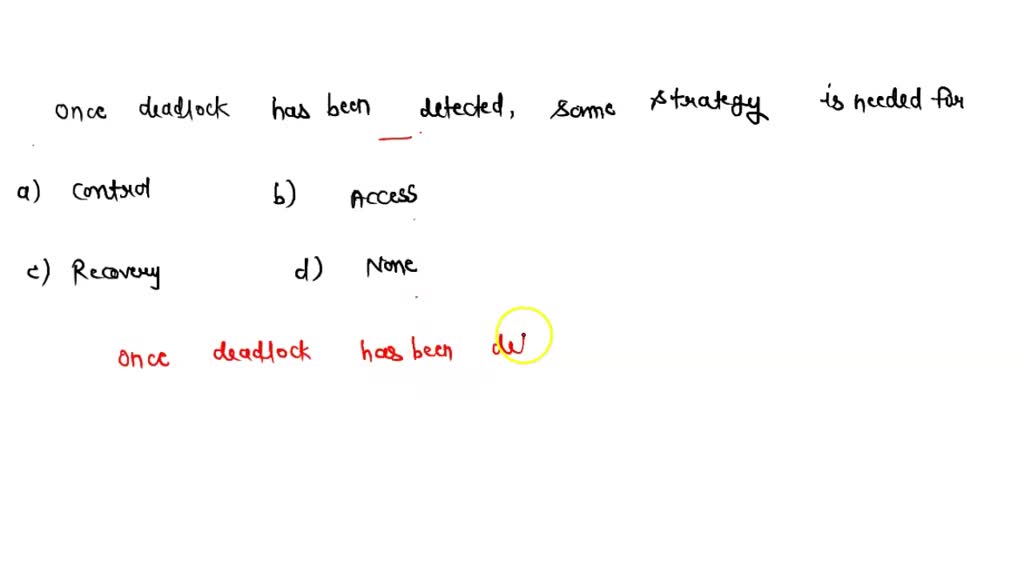 once deadlock has been detected, some strategy is needed for
a) control b) Access
c) Recovery d) None
once deadlock has been